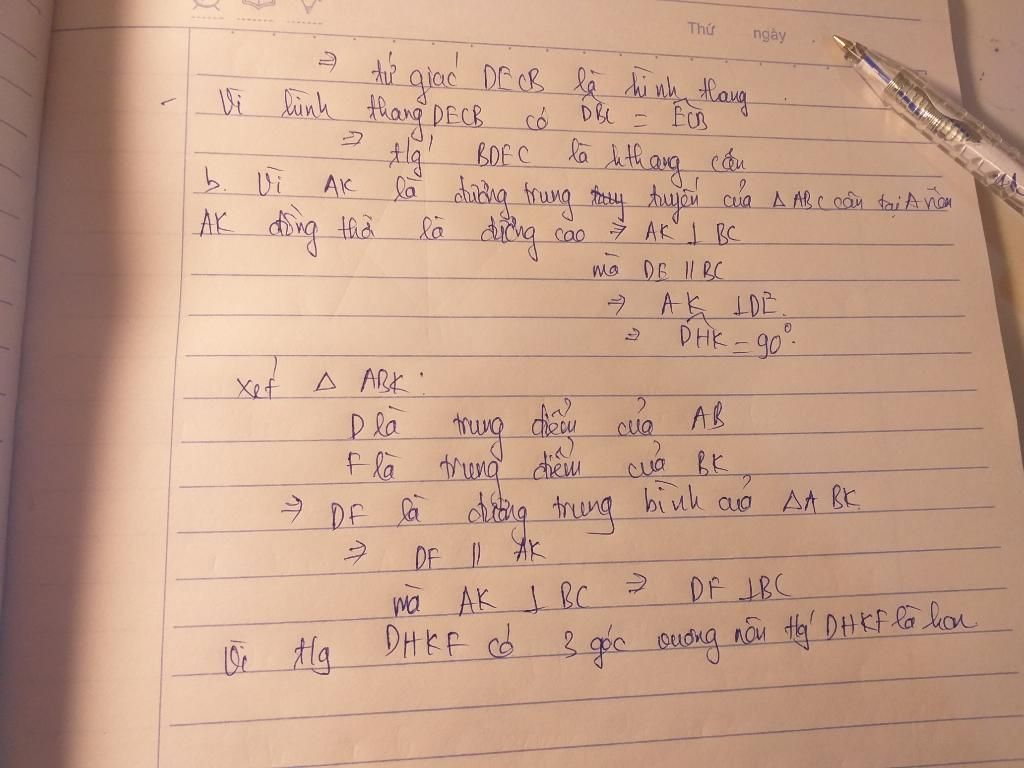 Thứ ngày
⇒ tứ giác DECB là hình thang.
Vì hình thang DECB có DBC = ECB
⇒ tg BDEC là hthang cân
b. Vì AK là đường trung tuyến của △ ABC cân tại A nên
AK đồng thời là đường cao ⇒ AK ⊥ BC
mà DE ∥ BC
⇒ AK ⊥ DE.
⇒ DHK = 90°.
Xét △ ABK:
D là trung điểm của AB
F là trung điểm của BK
⇒ DF là đường trung bình của △ABK
⇒ DF ∥ AK
mà AK ⊥ BC ⇒ DF ⊥ BC
Vì tg DHKF có 3 góc vuông nên tg DHKF là hcn